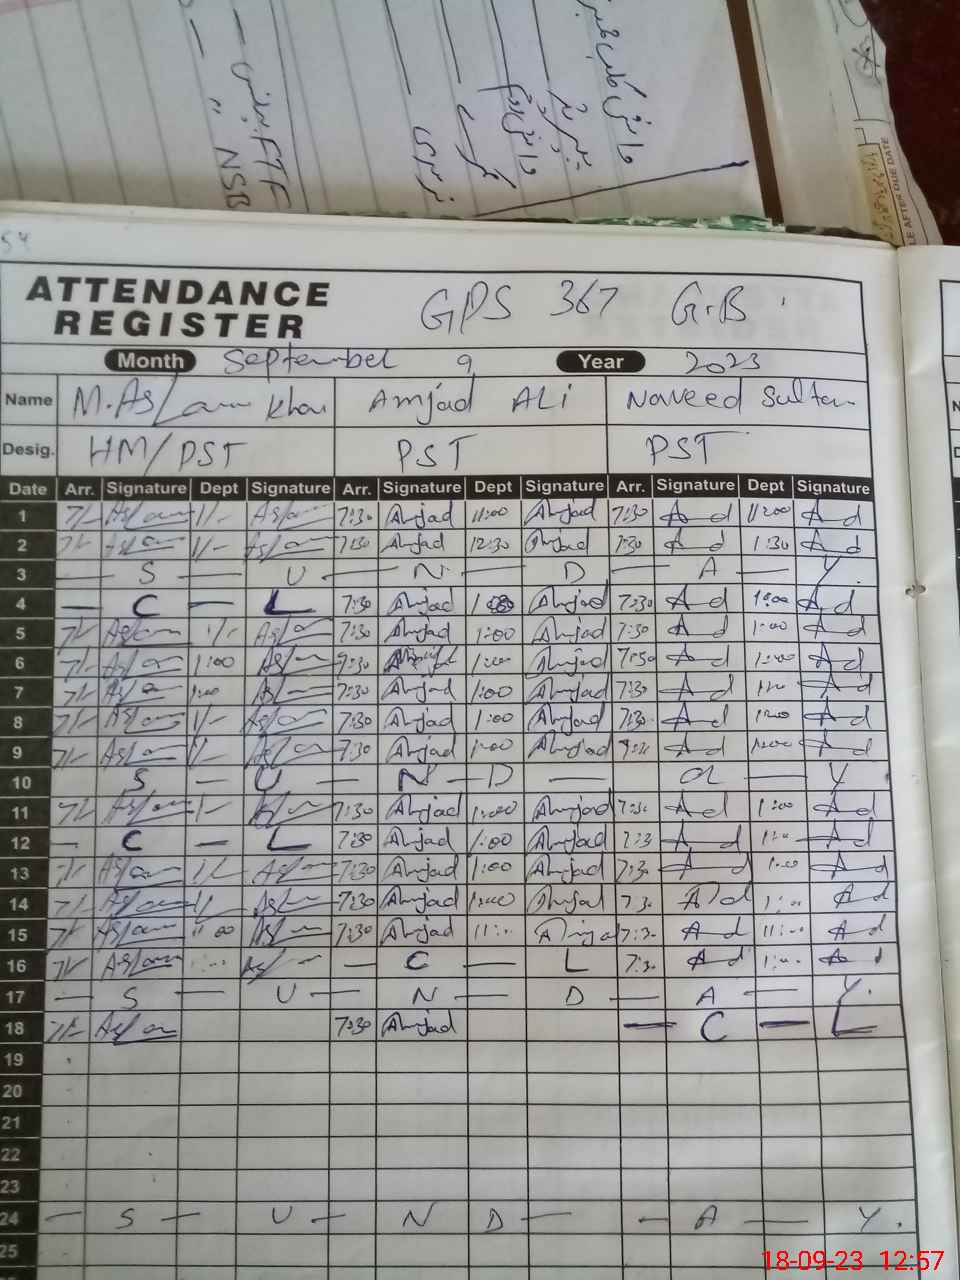 FTF
" NSB
LE AFTER DUE DATE
54
ATTENDANCE REGISTER
GPS 367 G.B
Month September 9 Year 2023
Name M. Aslam Khan Amjad ALi Naveed Sultan
Desig. HM/PST PST PST
Date Arr. Signature Dept Signature Arr. Signature Dept Signature Arr. Signature Dept Signature
1 7/- Aslam 1/- Aslam 7:30 Amjad 11:00 Amjad 7:30 A d 11:00 A d
2 7/- Aslam 1/- Aslam 7:30 Amjad 12:30 Amjad 7:30 A d 1:30 A d
3 — S — U — N — D — A — Y.
4 — C — L 7:30 Amjad 1:00 Amjad 7:30 A d 1:00 A d
5 7/- Aslam 1/- Aslam 7:30 Amjad 1:00 Amjad 7:30 A d 1:00 A d
6 7/- Aslam 1:00 Aslam 7:30 Amjad 1:00 Amjad 7:30 A d 1:00 A d
7 7/- Aslam 1:00 Aslam 7:30 Amjad 1:00 Amjad 7:30 A d 1:00 A d
8 7/- Aslam 1/- Aslam 7:30 Amjad 1:00 Amjad 7:30 A d 1:00 A d
9 7/- Aslam 1/- Aslam 7:30 Amjad 1:00 Amjad A d 1:00 A d
10 S — U — N — D — a — Y
11 7/- Aslam 1/- Aslam 7:30 Amjad 1:00 Amjad 7:30 A d 1:00 A d
12 — C — L 7:30 Amjad 1:00 Amjad 7:30 A d 1:00 A d
13 7/- Aslam 1/- Aslam 7:30 Amjad 1:00 Amjad 7:30 A d 1:00 A d
14 7/- Aslam 1/- Aslam 7:30 Amjad 1:00 Amjad 7:30 A d 1:00 A d
15 7/- Aslam 11:00 Aslam 7:30 Amjad 11:00 Amjad 7:30 A d 11:00 A d
16 7/- Aslam 1:00 Aslam — C — L 7:30 A d 1:00 A d
17 — S — U — N — D — A — Y.
18 7/- Aslam 7:30 Amjad — C — L
19
20
21
22
23
24 — S — U — N D — - A — Y.
25
18-09-23 12:57